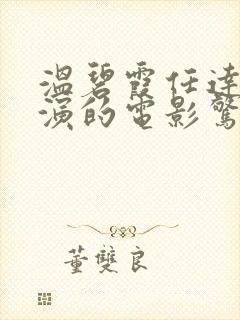 温碧霞任達
演的電影驚
董雙良